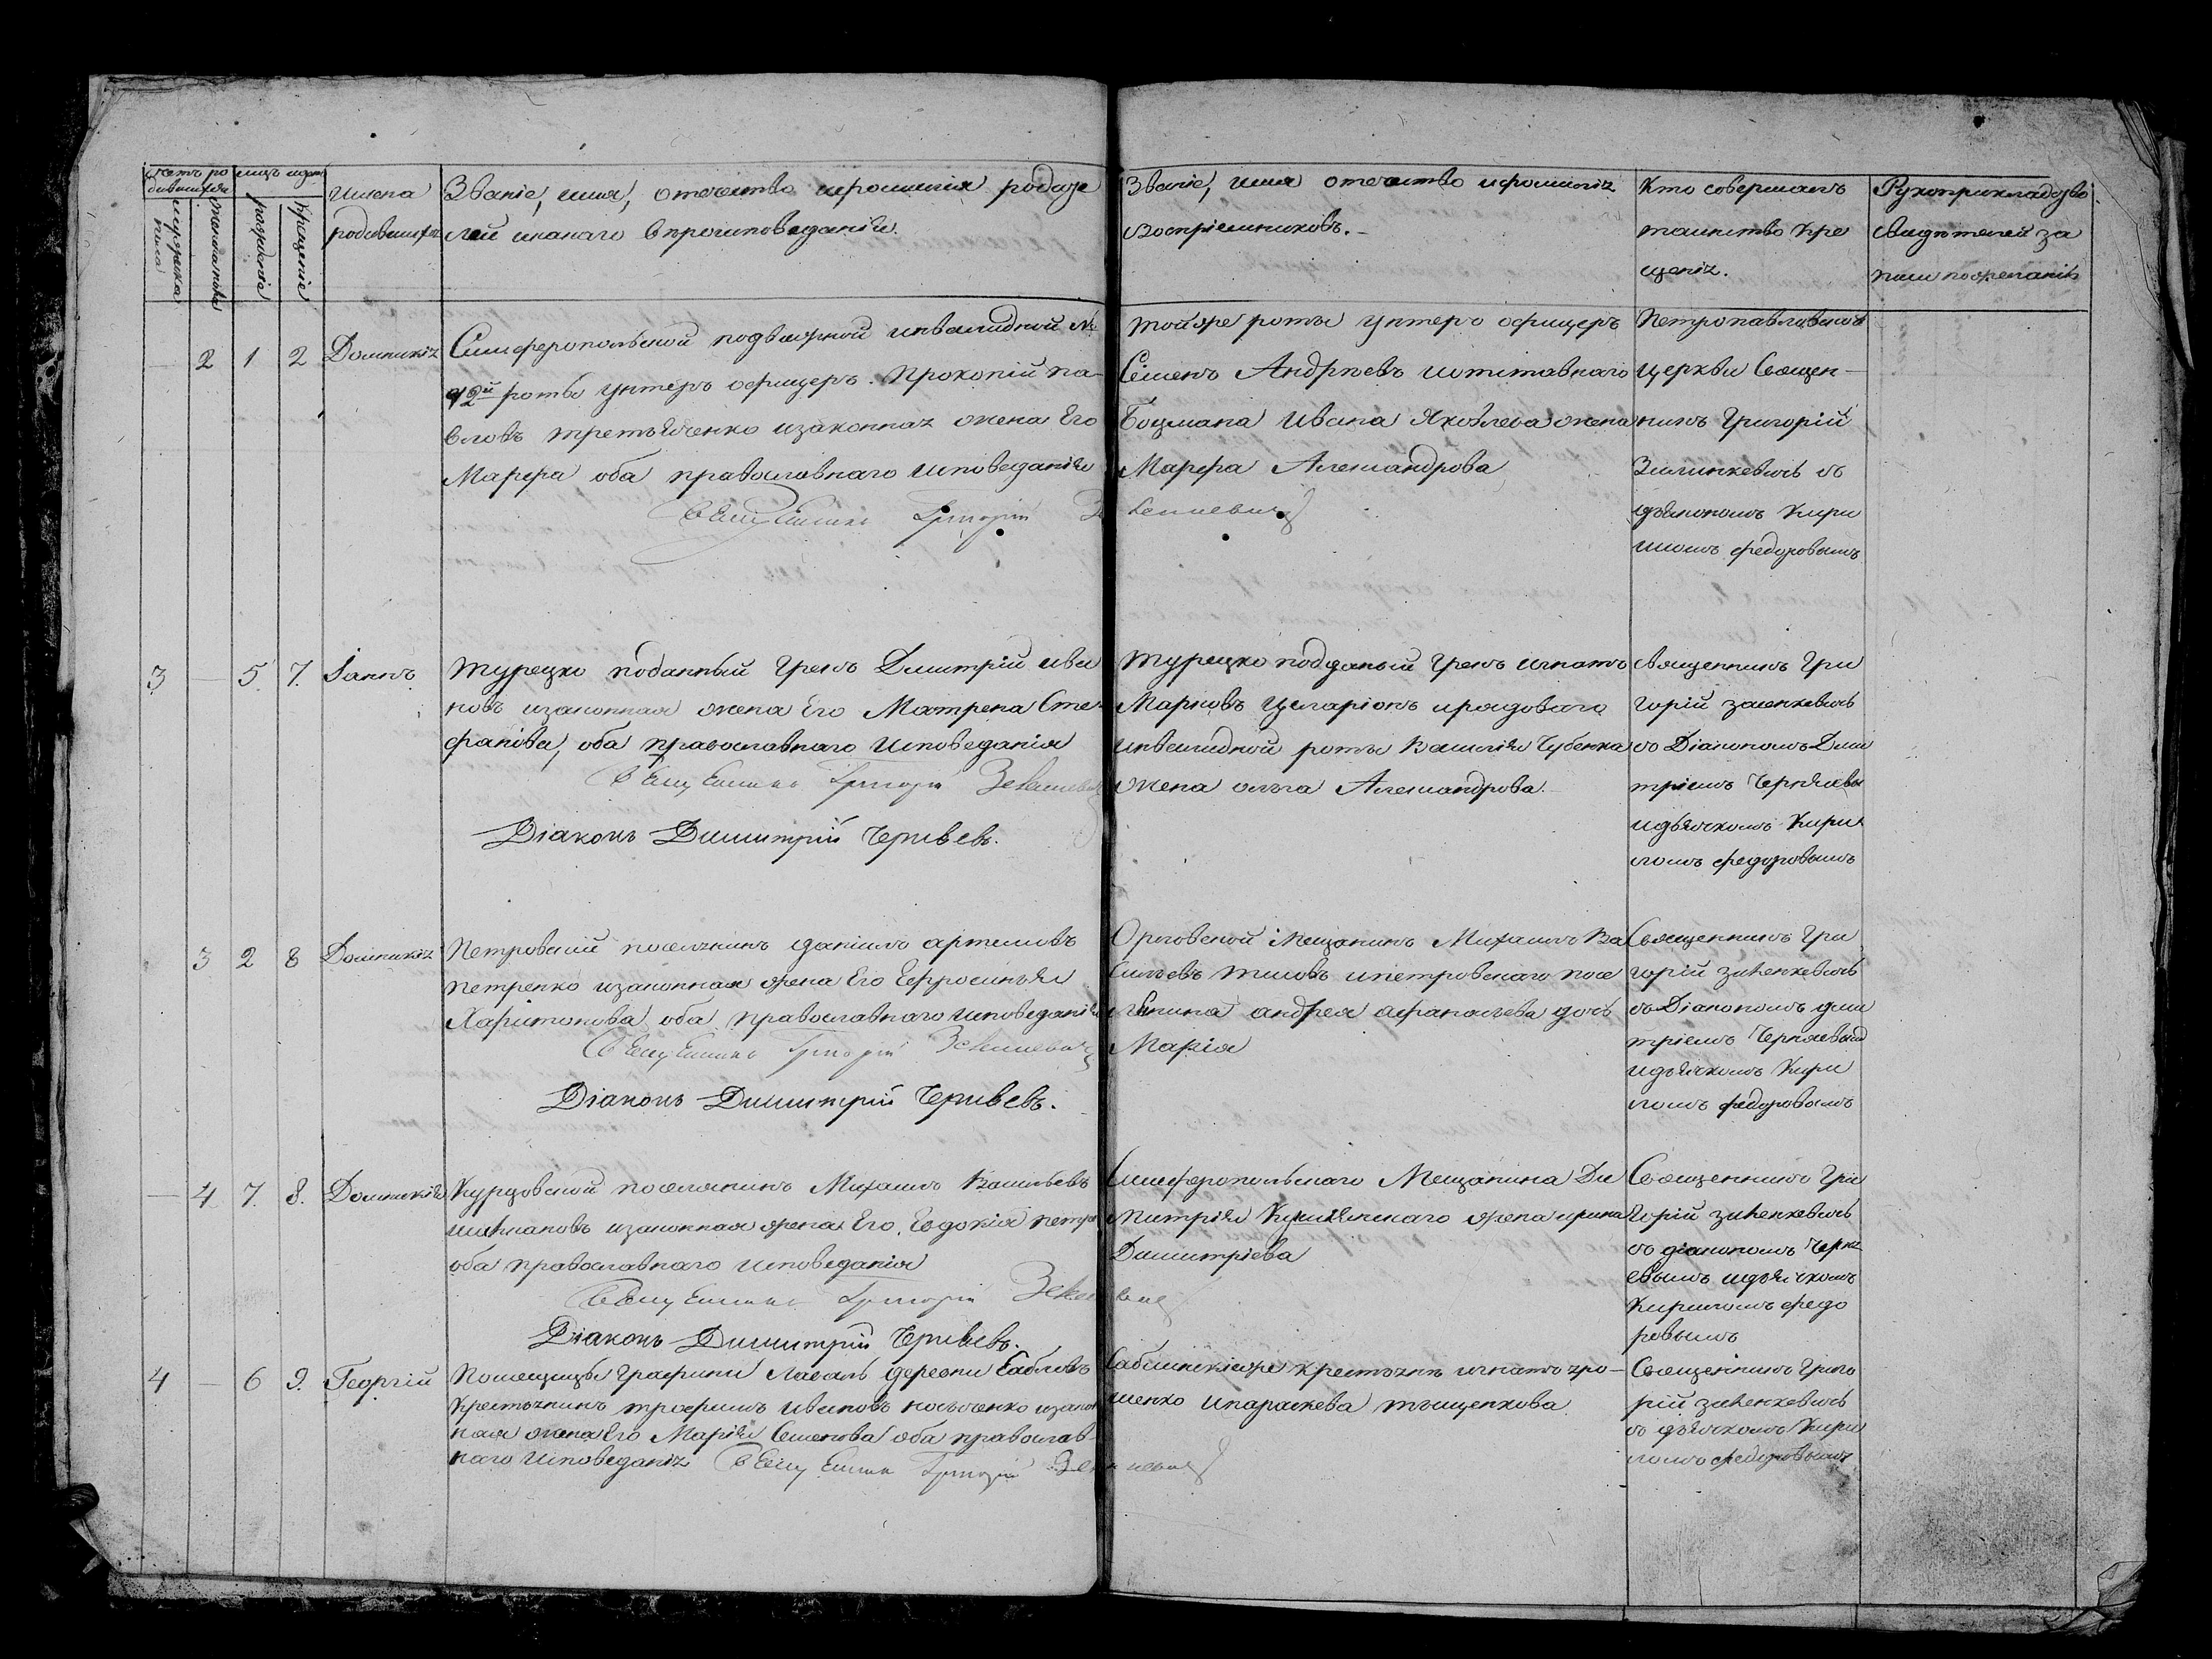 Счетъ ро
дившихся
мужеска
пола
женска пола
мцъ и день
рожденіе
крещеніе
Имена
родившихся
Званіе, имя, отечество и фамилія родите
лей и какаго вѣроисповеданія.
Званіе, имя отечество и фамилія
воспріемниковъ.
Кто совершалъ
таинство кре
щенія.
Рукоприкладство
свидѣтелей за
писи по желанію
— 2 1 2 Домникія
Симферопольской подвижной инвалидной №
92й роты унтеръ офицеръ Прокопій Па-
вловъ Третьяченко и законная жена Его
Марфа оба православнаго исповеданія
Священникъ Григорій
той же роты унтеръ офицеръ
Семенъ Андреевъ и отставнаго
Боцмана Ивана Яковлева жена
Марфа Александрова
Петропавловской
церкви Священ-
никъ Григорій
съ
дьякономъ Кири
ломъ Федоровымъ
3 — 5. 7. Іаннъ
Турецко поданный Грекъ Дмитрій Ива
новъ и законная жена Его Матрена Сте-
фанова, оба православнаго исповеданія
Священникъ Григорій
Діаконъ Димитрій
Турецко подданый Грекъ Игнатъ
Марковъ и рядоваго
инвалидной роты Василія Губенка
жена Олга Александрова.
Священникъ Гри
горій
съ Діакономъ Дми
тріемъ
и дьячкомъ Кири
ломъ Федоровымъ
3 2 8 Домникія
Петровскій поселянинъ Даніилъ Артемовъ
Петренко и законная жена Его Ефросинья
Харитонова оба православнаго исповеданія
Священникъ Григорій
Діаконъ Димитрій
Мещанинъ Михаилъ Ва
сильевъ и Петровскаго посе
лянина Андрея Афанасьева дочь
Марія
Священникъ Гри
горій
съ Діакономъ Дми
тріемъ
и дьячкомъ Кири
ломъ Федоровымъ
— 4 7. 8. Домникія
Курцовской поселянинъ Михаилъ Васильевъ
и законная жена Его Евдокія Петро
оба православнаго исповеданія
Священникъ Григорій
Діаконъ Димитрій
Симферопольскаго Мещанина Ди
митрія жена Ирина
Димитріева
Священникъ Гри
горій
съ діакономъ
евымъ и дьячкомъ
Кириломъ Федо
ровымъ
4 — 6 9. Георгій
Помещицы Графини Лаваль деревни Сабловъ
Крестьянинъ Трофимъ Ивановъ и закон
ная жена Его Марія Семенова оба православ-
наго исповеданія Священникъ Григорій
же крестьянинъ Игнатъ
и Параскева
Священникъ Григо
рій
съ дьячкомъ Кири
ломъ Федоровымъ